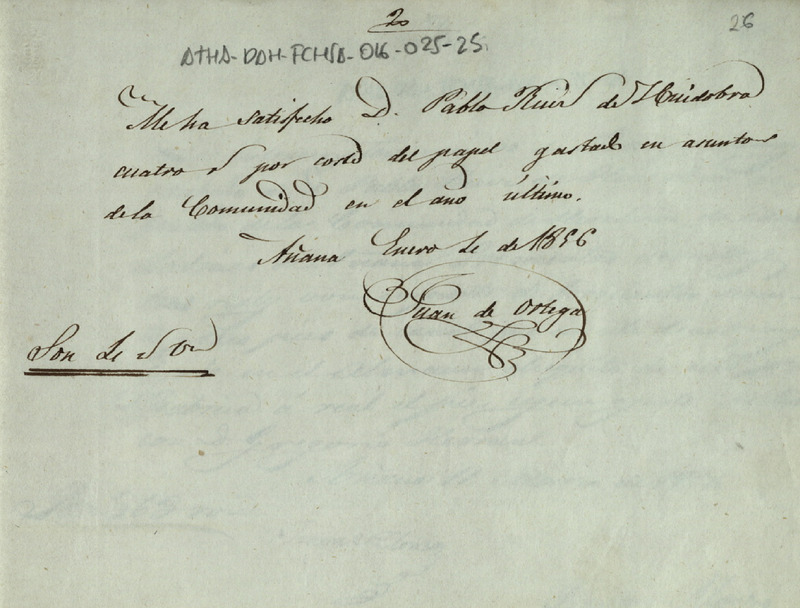 2o
26
ATHA-DAH-FCHSA-016-025-25
Me ha satisfecho D. Pablo Ruiz de Huidobro
cuatro rs por coste del papel gastado en asuntos
de la Comunidad en el año último.
Añana Enero de 1856
Juan de Ortega
Son rs vn